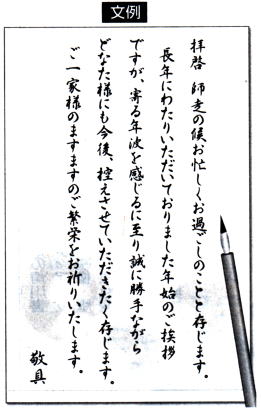 文例
拝啓 師走の候お忙しくお過ごしのことと存じます。
長年にわたりいただいておりました年始のご挨拶
ですが、寄る年波を感じるに至り誠に勝手ながら
どなた様にも今後、控えさせていただきたく存じます。
ご一家様のますますのご繁栄をお祈りいたします。
敬具